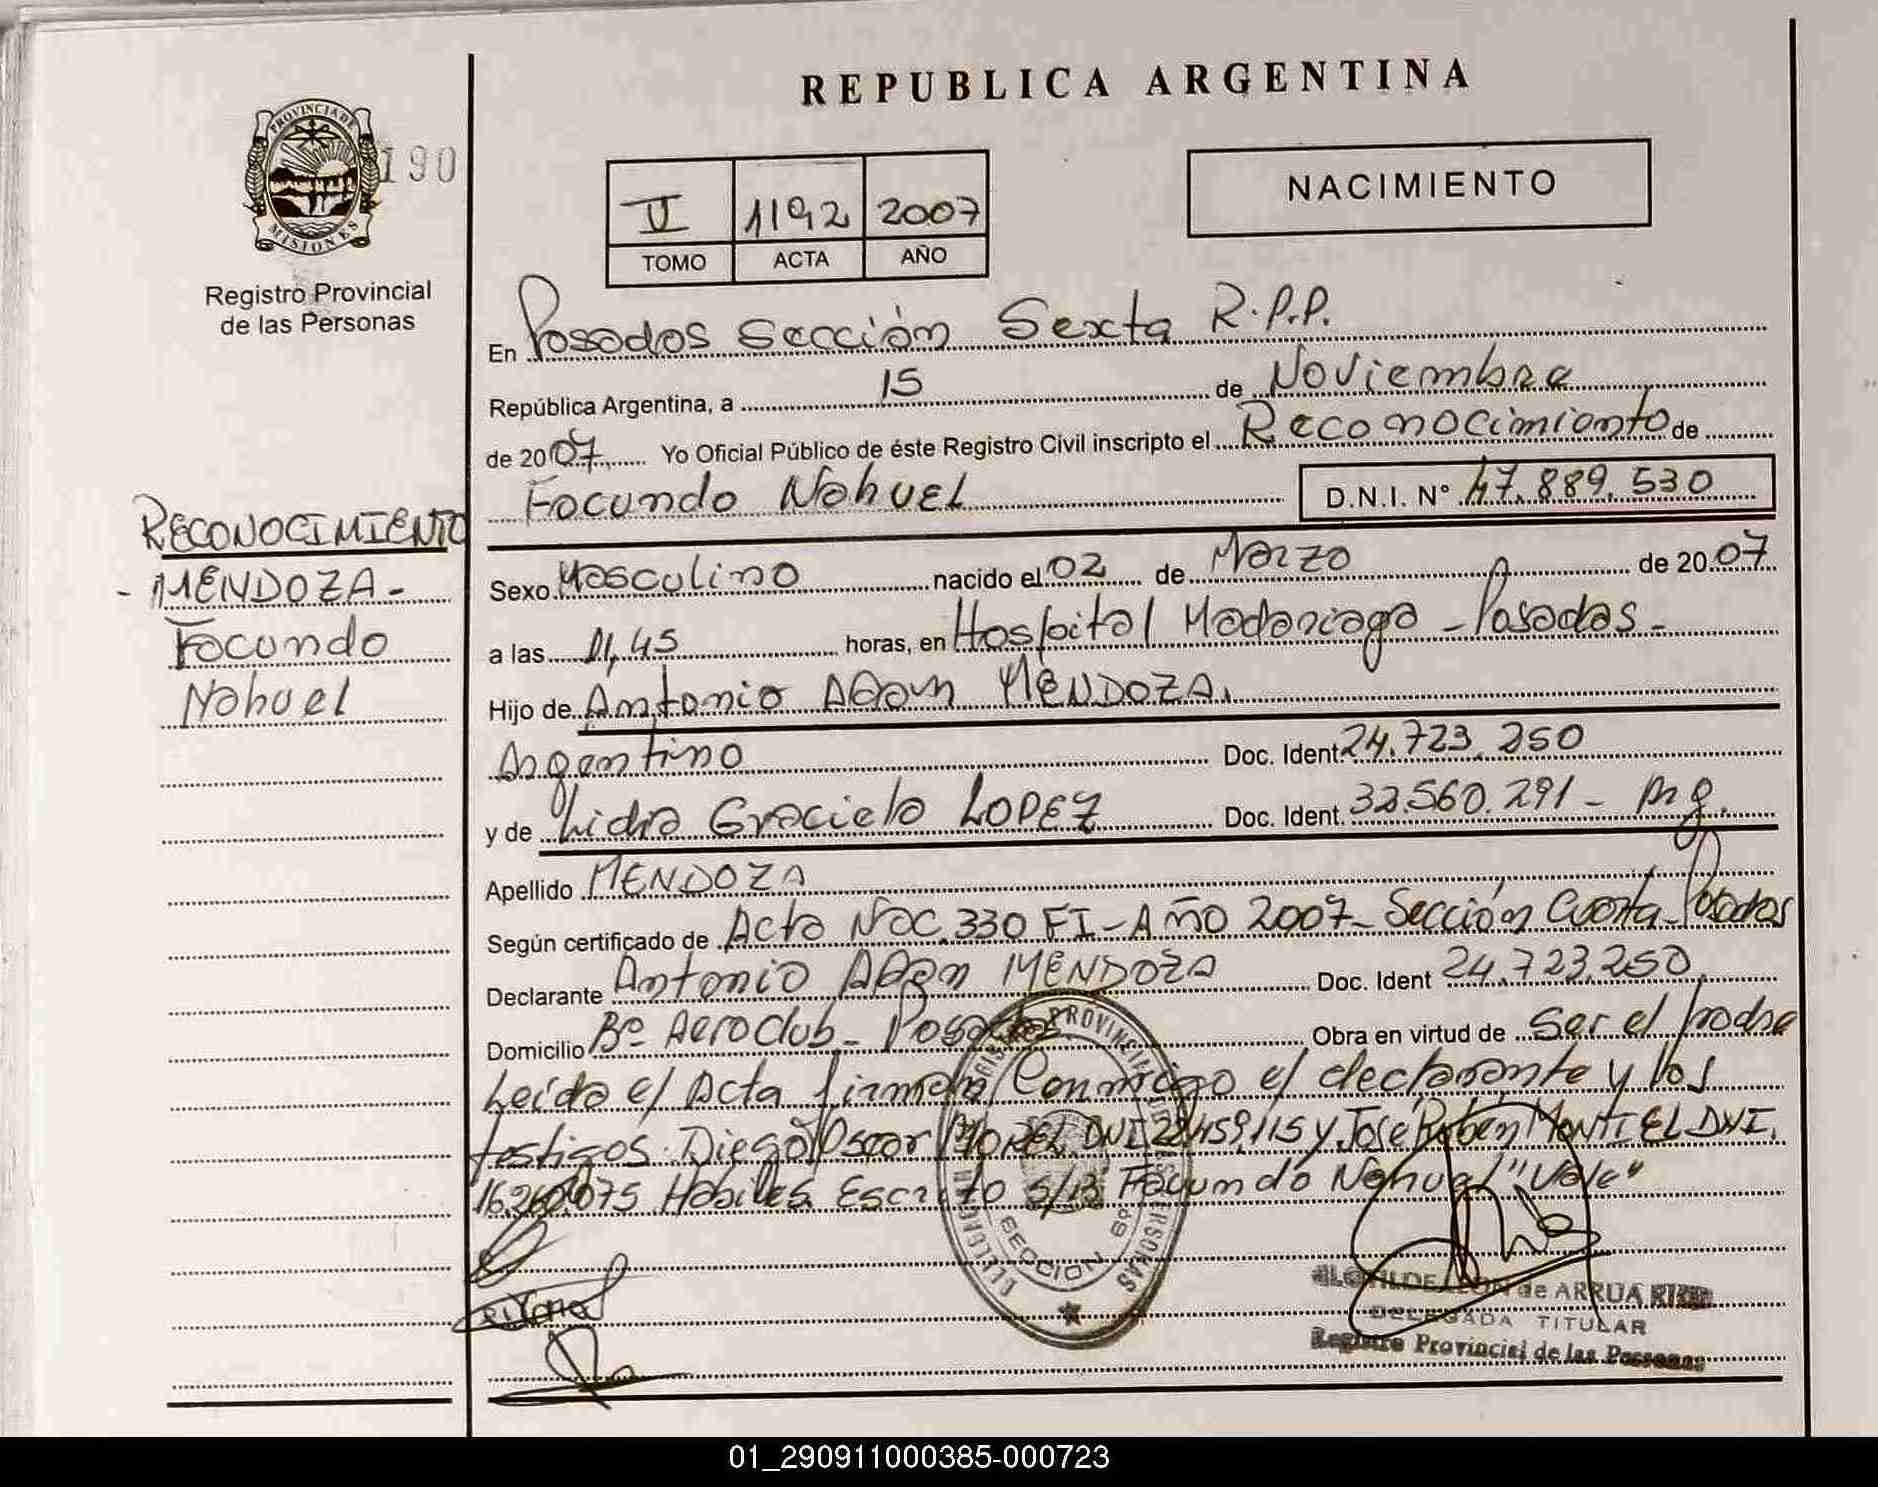 REPUBLICA ARGENTINA
PROVINCIA DE MISIONES
190
Registro Provincial
de las Personas
II 1192 2007
TOMO ACTA AÑO
NACIMIENTO
En Posadas Sección Sexta R.P.P.
República Argentina, a 15 de Noviembre
de 2007 Yo Oficial Público de éste Registro Civil inscripto el Reconocimiento de
Facundo Nahuel D.N.I. N° 47.889.530
RECONOCIMIENTO
- MENDOZA -
Facundo
Nahuel
Sexo Masculino nacido el 02 de Marzo de 2007
a las 11,45 horas, en Hospital Madariaga - Posadas -
Hijo de Antonio Adan MENDOZA.
Argentino Doc. Ident 24.723.250
y de Lidia Graciela LOPEZ Doc. Ident. 33.560.291 - Arg.
Apellido MENDOZA
Según certificado de Acta Nac. 330 FI - Año 2007 - Sección Cuarta - Posadas
Declarante Antonio Adan MENDOZA Doc. Ident 24.723.250
Domicilio Bº Aeroclub - Posadas Obra en virtud de Ser el padre
Leída el Acta firman Conmigo el declarante y los
testigos Diego Oscar MOREL DNI 22.459.115 y José Ruben MONTIEL DNI.
075 Hábiles. Escrito s/B Facundo Nahuel "Vale"
SECCION 6º
de ARRUA
DELEGADA TITULAR
Registro Provincial de las Personas
01_290911000385-000723